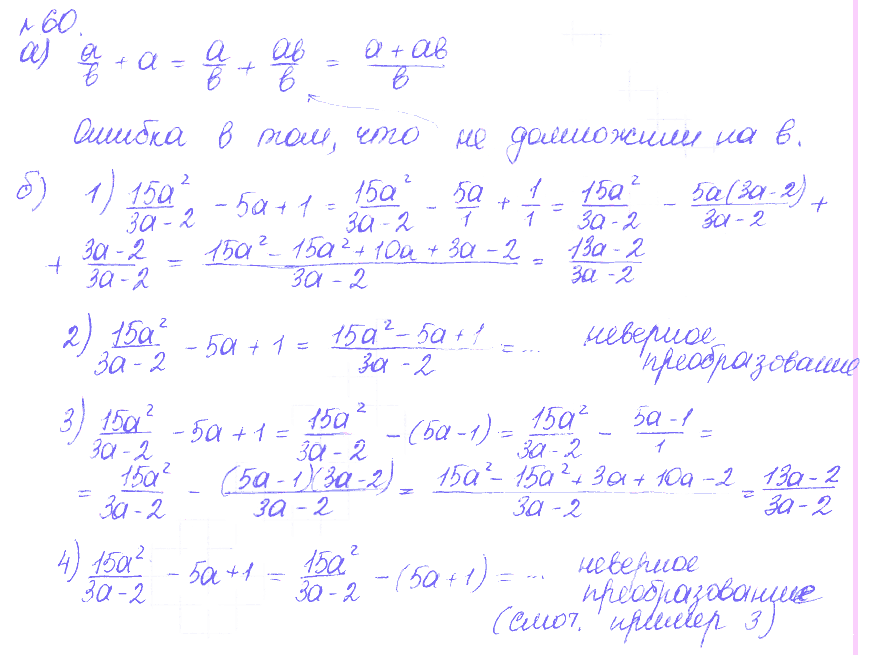 №60.
а) a/в + a = a/в + aв/в = (a + aв)/в
Ошибка в том, что не домножили на в.
б) 1) 15a²/(3a - 2) - 5a + 1 = 15a²/(3a - 2) - 5a/1 + 1/1 = 15a²/(3a - 2) - 5a(3a - 2)/(3a - 2) +
+ (3a - 2)/(3a - 2) = (15a² - 15a² + 10a + 3a - 2)/(3a - 2) = (13a - 2)/(3a - 2)
2) 15a²/(3a - 2) - 5a + 1 = (15a² - 5a + 1)/(3a - 2) = ... неверное
преобразование
3) 15a²/(3a - 2) - 5a + 1 = 15a²/(3a - 2) - (5a - 1) = 15a²/(3a - 2) - (5a - 1)/1 =
= 15a²/(3a - 2) - (5a - 1)(3a - 2)/(3a - 2) = (15a² - 15a² + 3a + 10a - 2)/(3a - 2) = (13a - 2)/(3a - 2)
4) 15a²/(3a - 2) - 5a + 1 = 15a²/(3a - 2) - (5a + 1) = ... неверное
преобразование
(смот. пример 3)